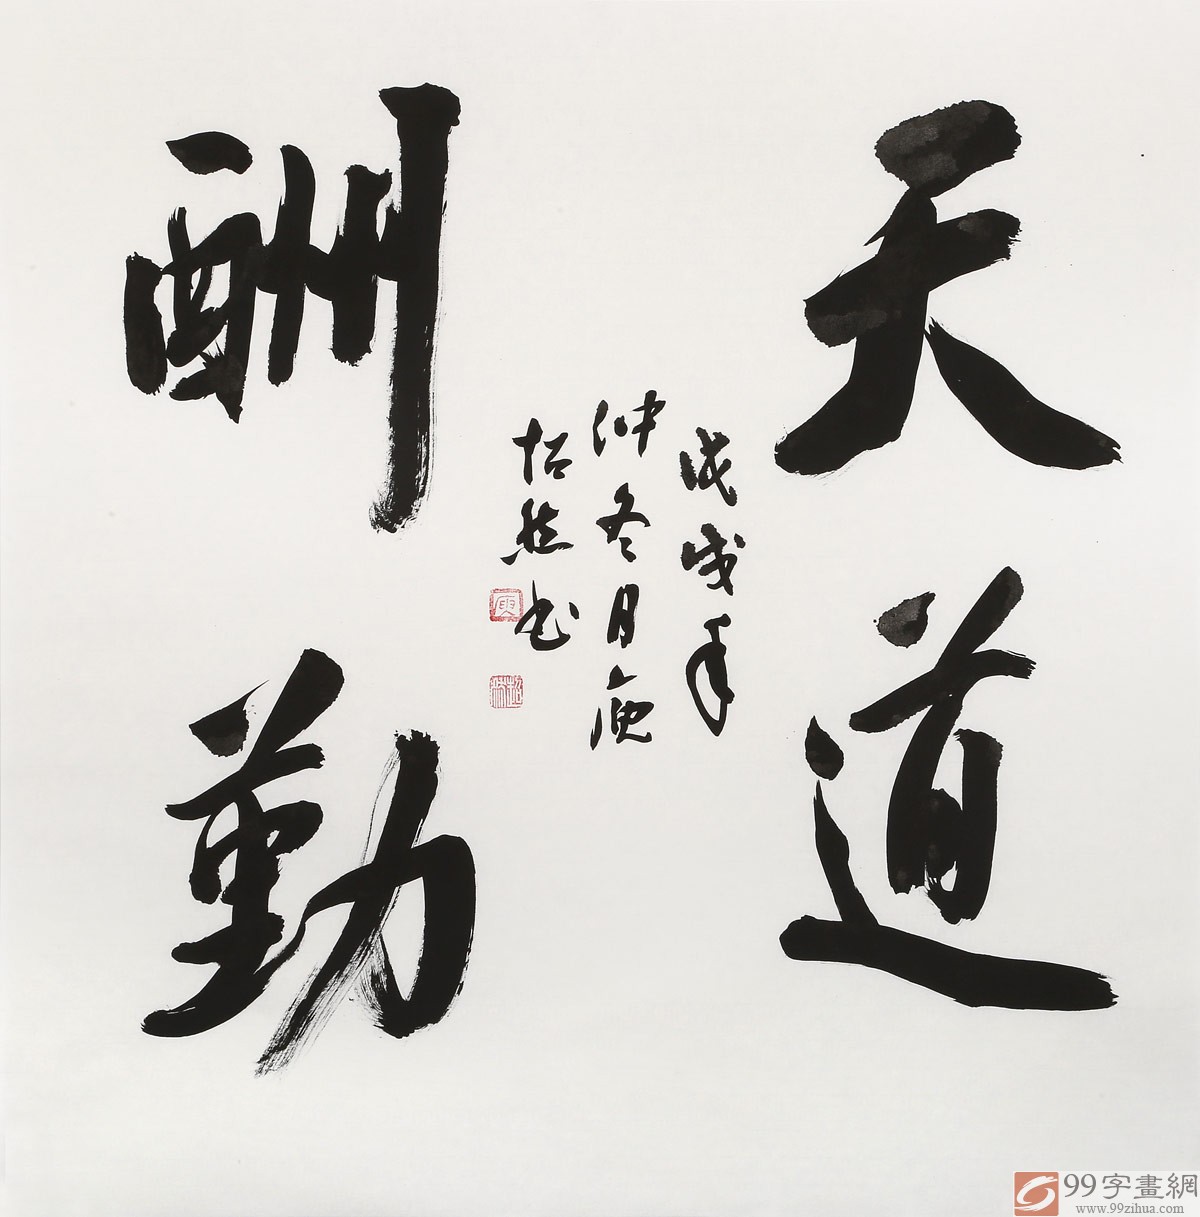 天道
酬勤
戊戌年
仲冬月庾
超然书
99字畫網
www.99zihua.com